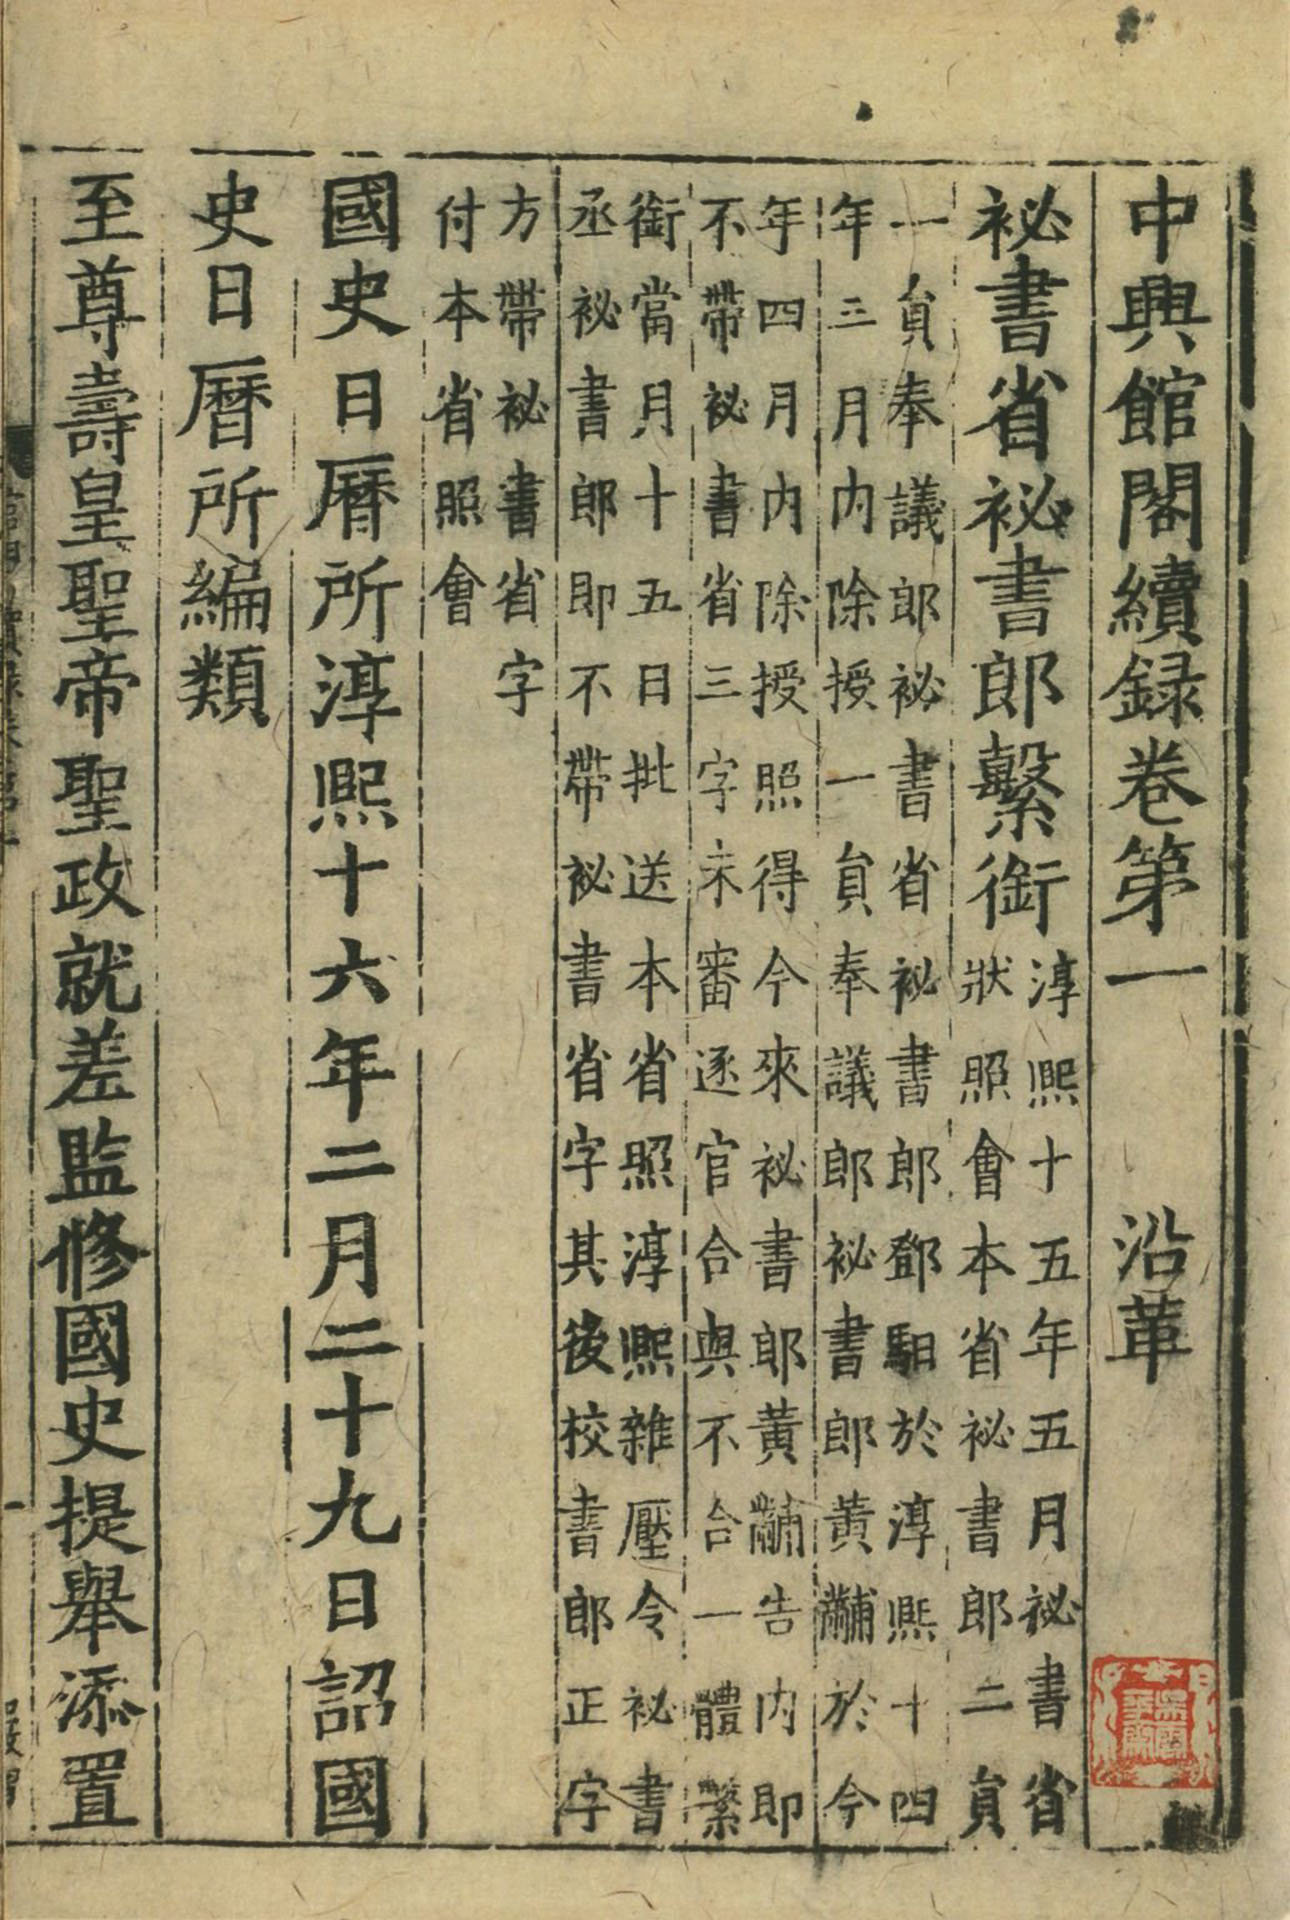 中興館閣續録卷第一　沿革
祕書省祕書郎繫銜
淳熙十五年五月祕書省
狀照會本省祕書郎二貟
一貟奉議郎祕書省祕書郎鄧馹於淳熙十四
年三月内除授一貟奉議郎祕書郎黄黼於今
年四月内除授照得今來祕書郎黄黼告内即
不帶祕書省三字未審逐官合與不合一體繫
銜當月十五日批送本省照淳熙雜壓令祕書
丞祕書郎即不帶祕書省字其後校書郎正字
方帶祕書省字
付本省照會
國史日曆所淳熙十六年二月二十九日詔國
史日曆所編類
至尊壽皇聖帝聖政就差監修國史提舉添置